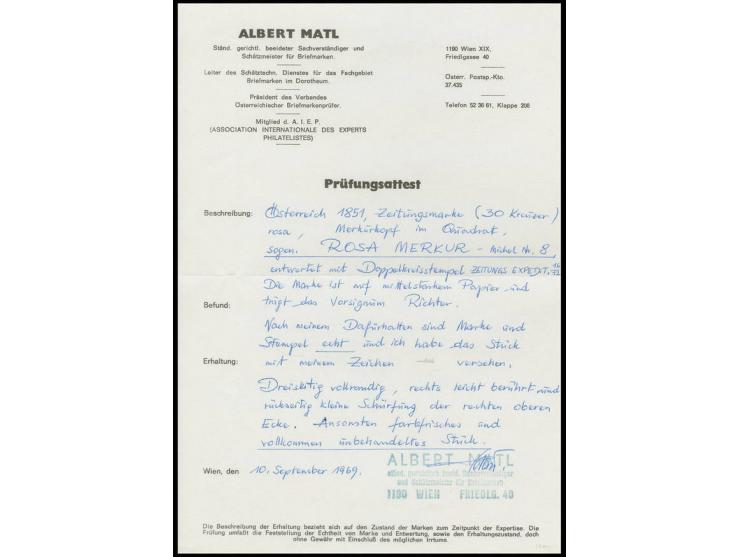 ALBERT MATL
Ständ. gerichtl. beeideter Sachverständiger und
Schätzmeister für Briefmarken.
Leiter des Schätztechn. Dienstes für das Fachgebiet
Briefmarken im Dorotheum.
Präsident des Verbandes
Österreichischer Briefmarkenprüfer.
Mitglied d. A. I. E. P.
(ASSOCIATION INTERNATIONALE DES EXPERTS
PHILATELISTES)
1190 Wien XIX,
Friedlgasse 40
Österr. Postsp.-Kto.
37.435
Telefon 52 36 61, Klappe 206
Prüfungsattest
Beschreibung: Österreich 1851, Zeitungsmarke (30 Kreuzer)
rosa, Merkurkopf im Quadrat,
sogen. ROSA MERKUR - Michel Nr. 8,
entwertet mit Doppelkreisstempel ZEITUNGS EXPEDIT.
Die Marke ist auf mittelstarkem Papier und
Befund: trägt das Vorsignum Richter.
Nach meinem Dafürhalten sind Marke und
Stempel echt und ich habe das Stück
Erhaltung: mit meinem Zeichen — versehen.
Dreiseitig vollrandig, rechts leicht berührt und
rückseitig kleine Schürfung der rechten oberen
Ecke. Ansonsten farbfrisches und
vollkommen unbehandeltes Stück.
ALBERT MATL
und Schätzmeister für Briefmarken
1190 WIEN FRIEDLG. 40
Wien, den 10. September 1969.
Die Beschreibung der Erhaltung bezieht sich auf den Zustand der Marken zum Zeitpunkt der Expertise. Die
Prüfung umfaßt die Feststellung der Echtheit von Marke und Entwertung, sowie den Erhaltungszustand, doch
ohne Gewähr mit Einschluß des möglichen Irrtums.